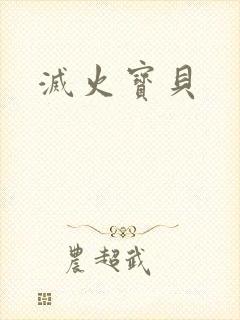 滅火寶貝
農超武